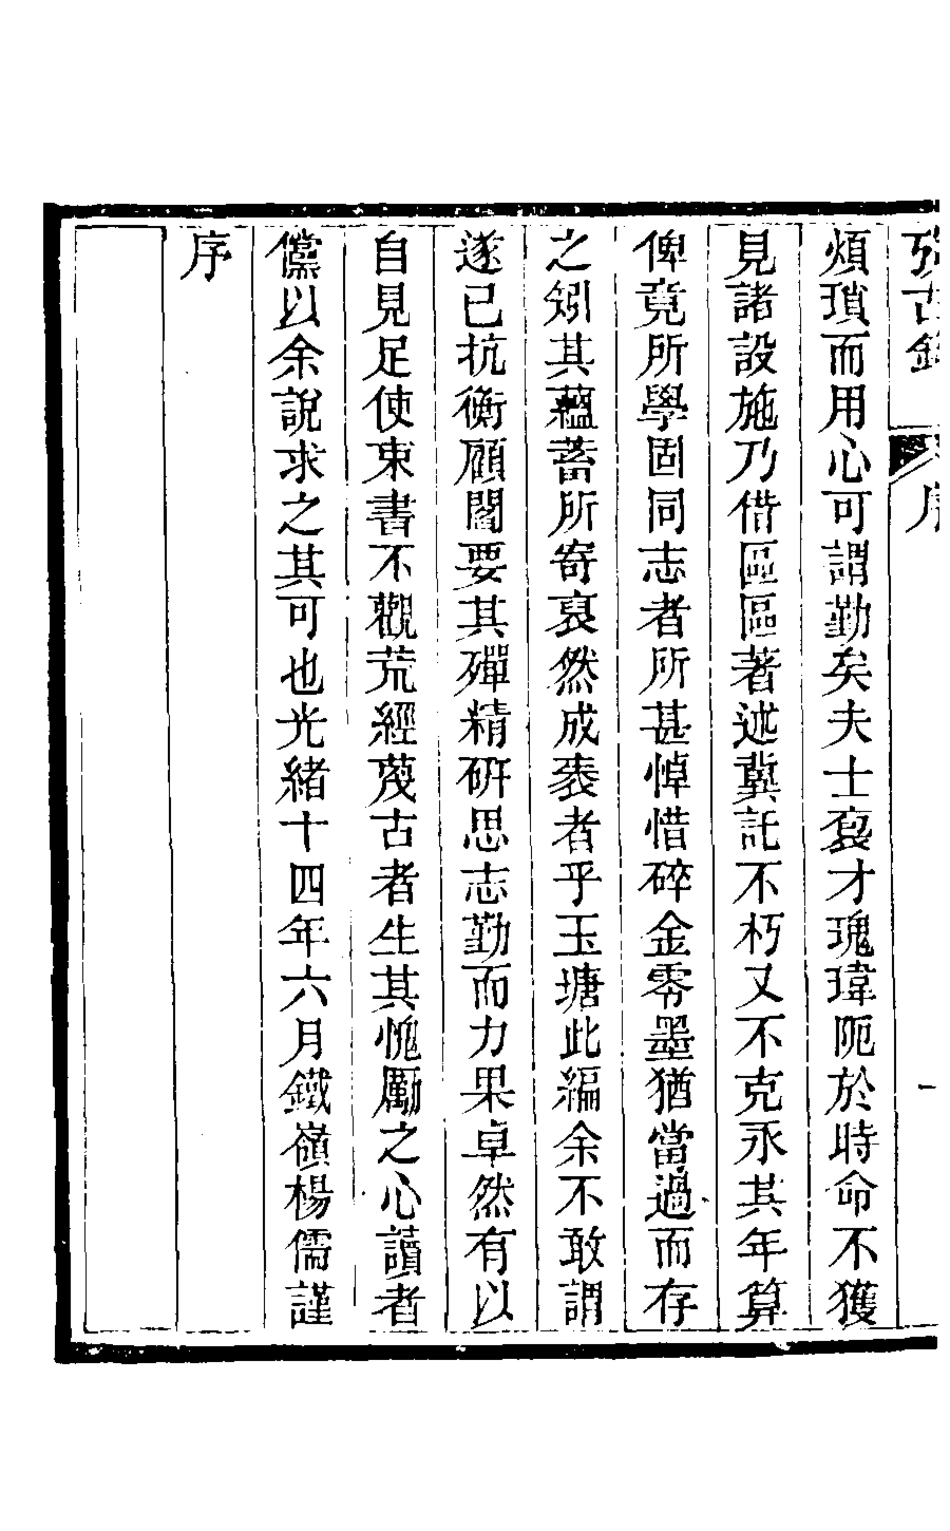 煩瑣而用心可謂勤矣夫士裒才瑰瑋阨於時命不獲
見諸設施乃借區區著述冀託不朽又不克永其年算
俾竟所學固同志者所甚悼惜碎金零墨猶當過而存
之矧其蘊蓄所寄裒然成袠者乎玉塘此編余不敢謂
遂已抗衡顧閻要其殫精研思志勤而力果卓然有以
自見足使束書不觀荒經蔑古者生其愧勵之心讀者
儻以余說求之其可也光緒十四年六月鐵嶺楊儒謹
序